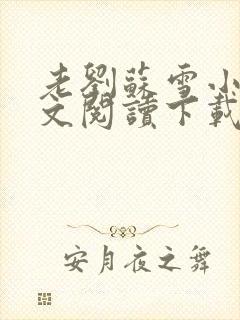 老劉蘇雪小
文閱讀下載
安月夜之舞